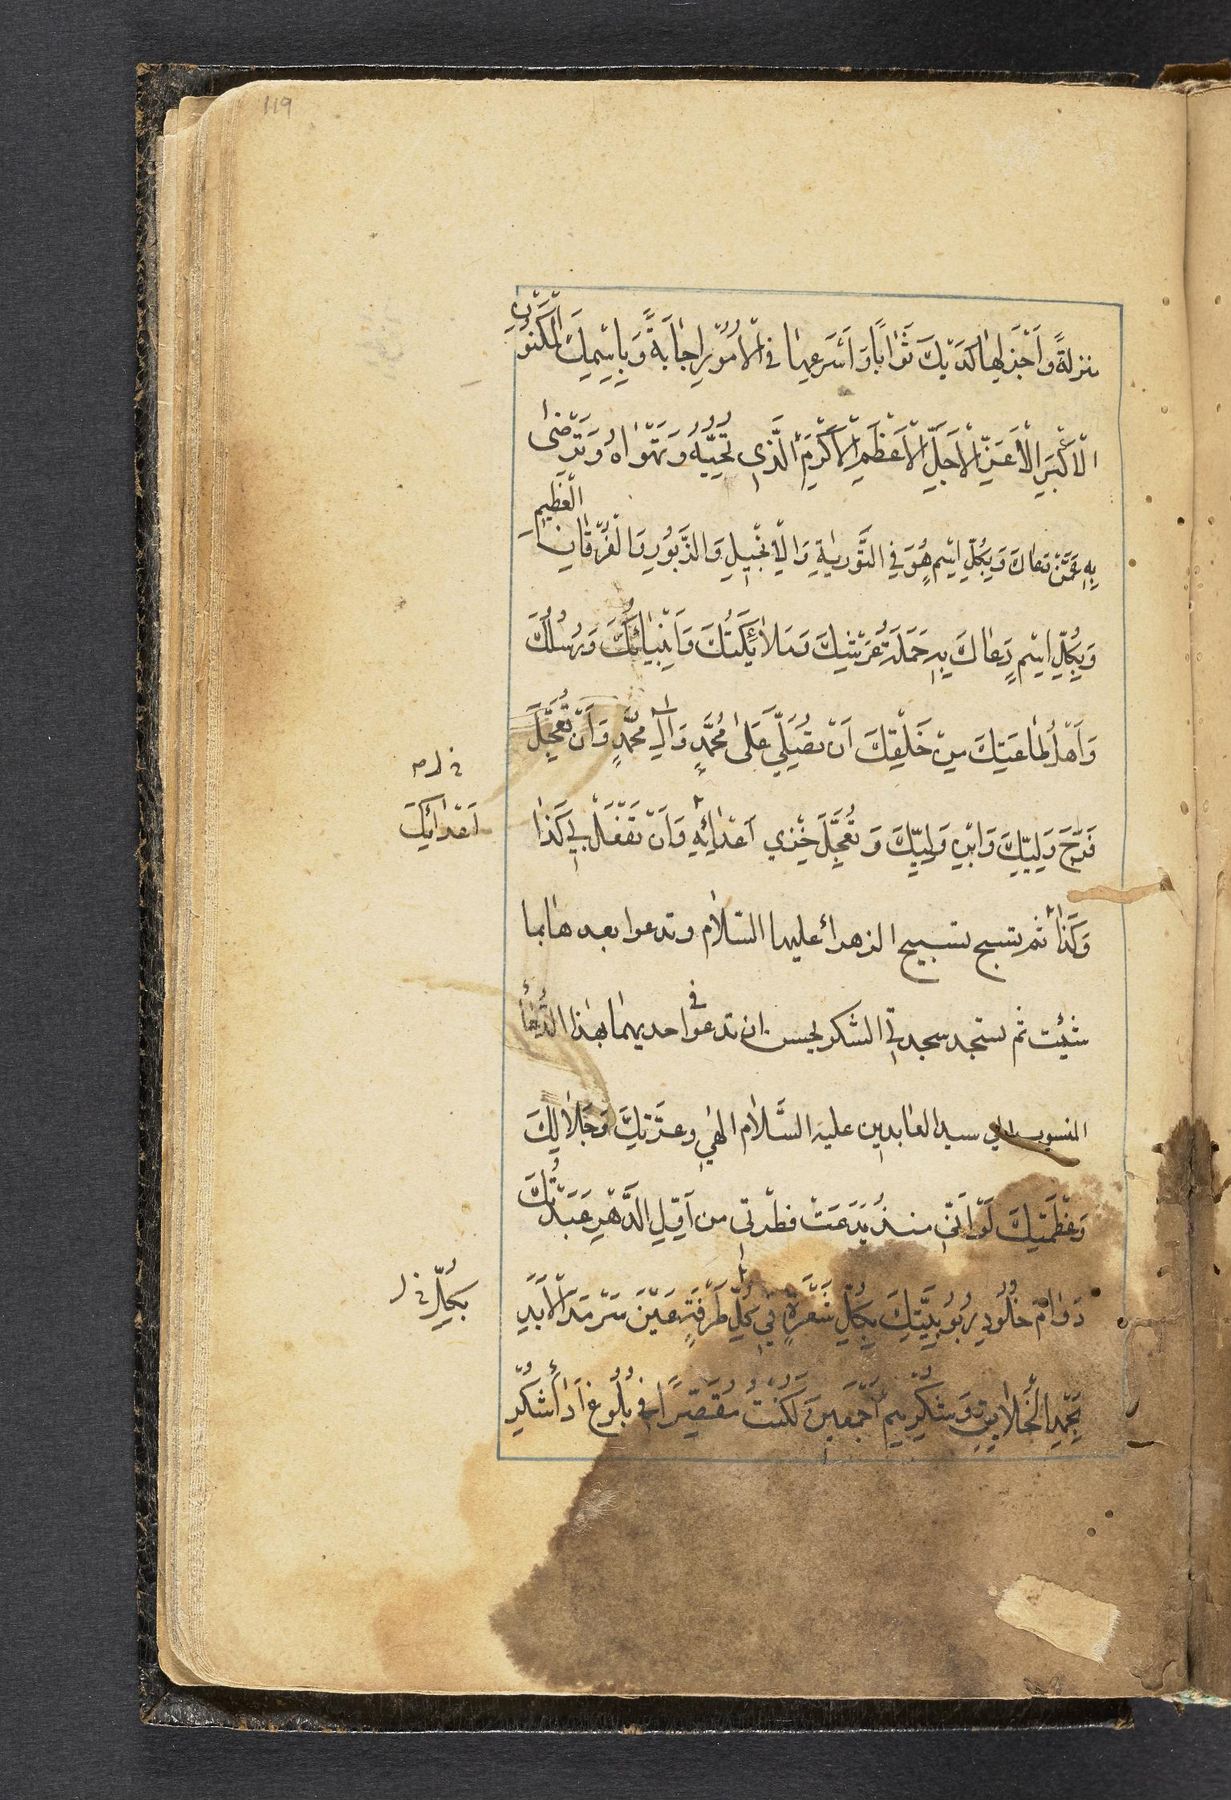 119
منزلةً وَاَجْزَلِهٰا لَدَيْكَ ثَوٰابًا وَاَسْرَعِهٰا فِي الْاُمُوْرِ اِجٰابَةً وَبِاِسْمِكَ الْمَكْنُوْنِ
الْاَكْبَرِ الْاَعَزِّ الْاَجَلِّ الْاَعْظَمِ الْاَكْرَمِ الَّذِي تُحِبُّهُ وَتَهْوٰاهُ وَتَرْضٰى
بِهِ عَمَّنْ دَعٰاكَ وَبِكُلِّ اسْمٍ هُوَ فِي التَّوْرِيٰةِ وَالْاِنْجِيلِ وَالزَّبُوْرِ وَالْفُرْقٰانِ الْعَظِيمِ
وَبِكُلِّ اسْمٍ دَعٰاكَ بِهِ حَمَلَةُ عَرْشِكَ وَمَلاٰئِكَتُكَ وَاَنْبِيٰائُكَ وَرُسُلُكَ
وَاَهْلُ طٰاعَتِكَ مِنْ خَلْقِكَ اَنْ تُصَلِّيَ عَلٰى مُحَمَّدٍ وَاٰلِ مُحَمَّدٍ وَاَنْ تُعَجِّلَ
فَرَجَ وَلِيِّكَ وَابْنِ وَلِيِّكَ وَتُعَجِّلَ خِزْيَ اَعْدٰائِهِ وَاَنْ تَفْعَلَ بِي كَذٰا
اَعْدٰائِكَ
وَكَذٰا ثم تسبح تسبيح الزهراء عليها السّلاٰم وتدعوا بعدهٰا بما
شئت ثم تسجد سجدتي الشكر يحسن ان تدعو في احديهمٰا بهٰذا الدُّعٰاء
المنسوب الي سيد العٰابدين عليه السَّلاٰم الهٰي وعزَّتِكَ وَجَلاٰلِكَ
وَعَظَمَتِكَ لَوْ اَنّي منذُ بَدَعَتْ فطْرَتي من اَوّلِ الدَّهْرِ عَبَدْتُكَ
دَوٰامَ خُلُودِ رُبُوبِيَّتِكَ بِكُلِّ شَعْرَةٍ فِي كُلِّ طَرْفَةِ عَيْنٍ سَرْمَدَ الْاَبَدِ
بكُلِّ خ ل
بِحَمْدِ الْخَلاٰيِقِ وَشُكْرِهِمْ اَجْمَعِينَ لَكُنْتُ مُقَصِّرًا فِي بُلُوغِ اَدٰاءِ شُكْرِ